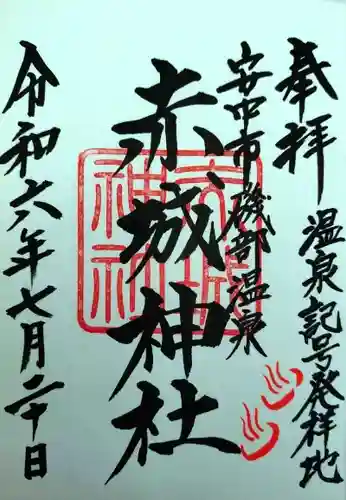 奉拝
温泉記号発祥地
安中市磯部温泉
赤城神社
令和六年七月二十日